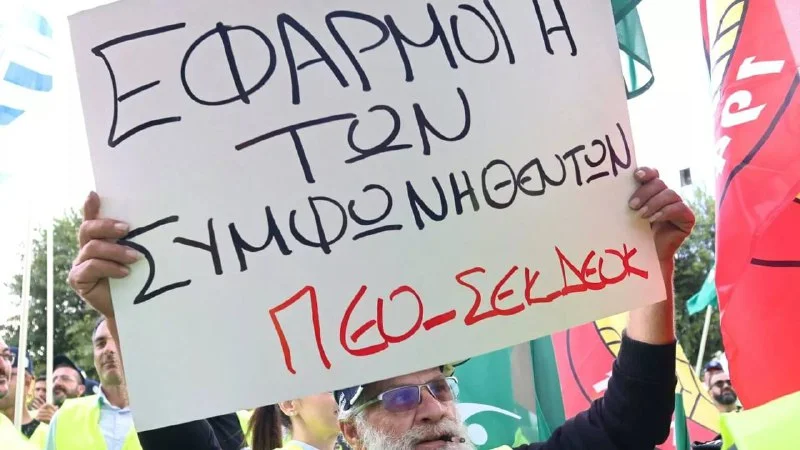 ΕΦΑΡΜΟΓΗ
ΤΩΝ
ΣΥΜΦΩΝΗΘΕΝΤΩΝ
ΠΕΟ-ΣΕΚ-ΔΕΟΚ